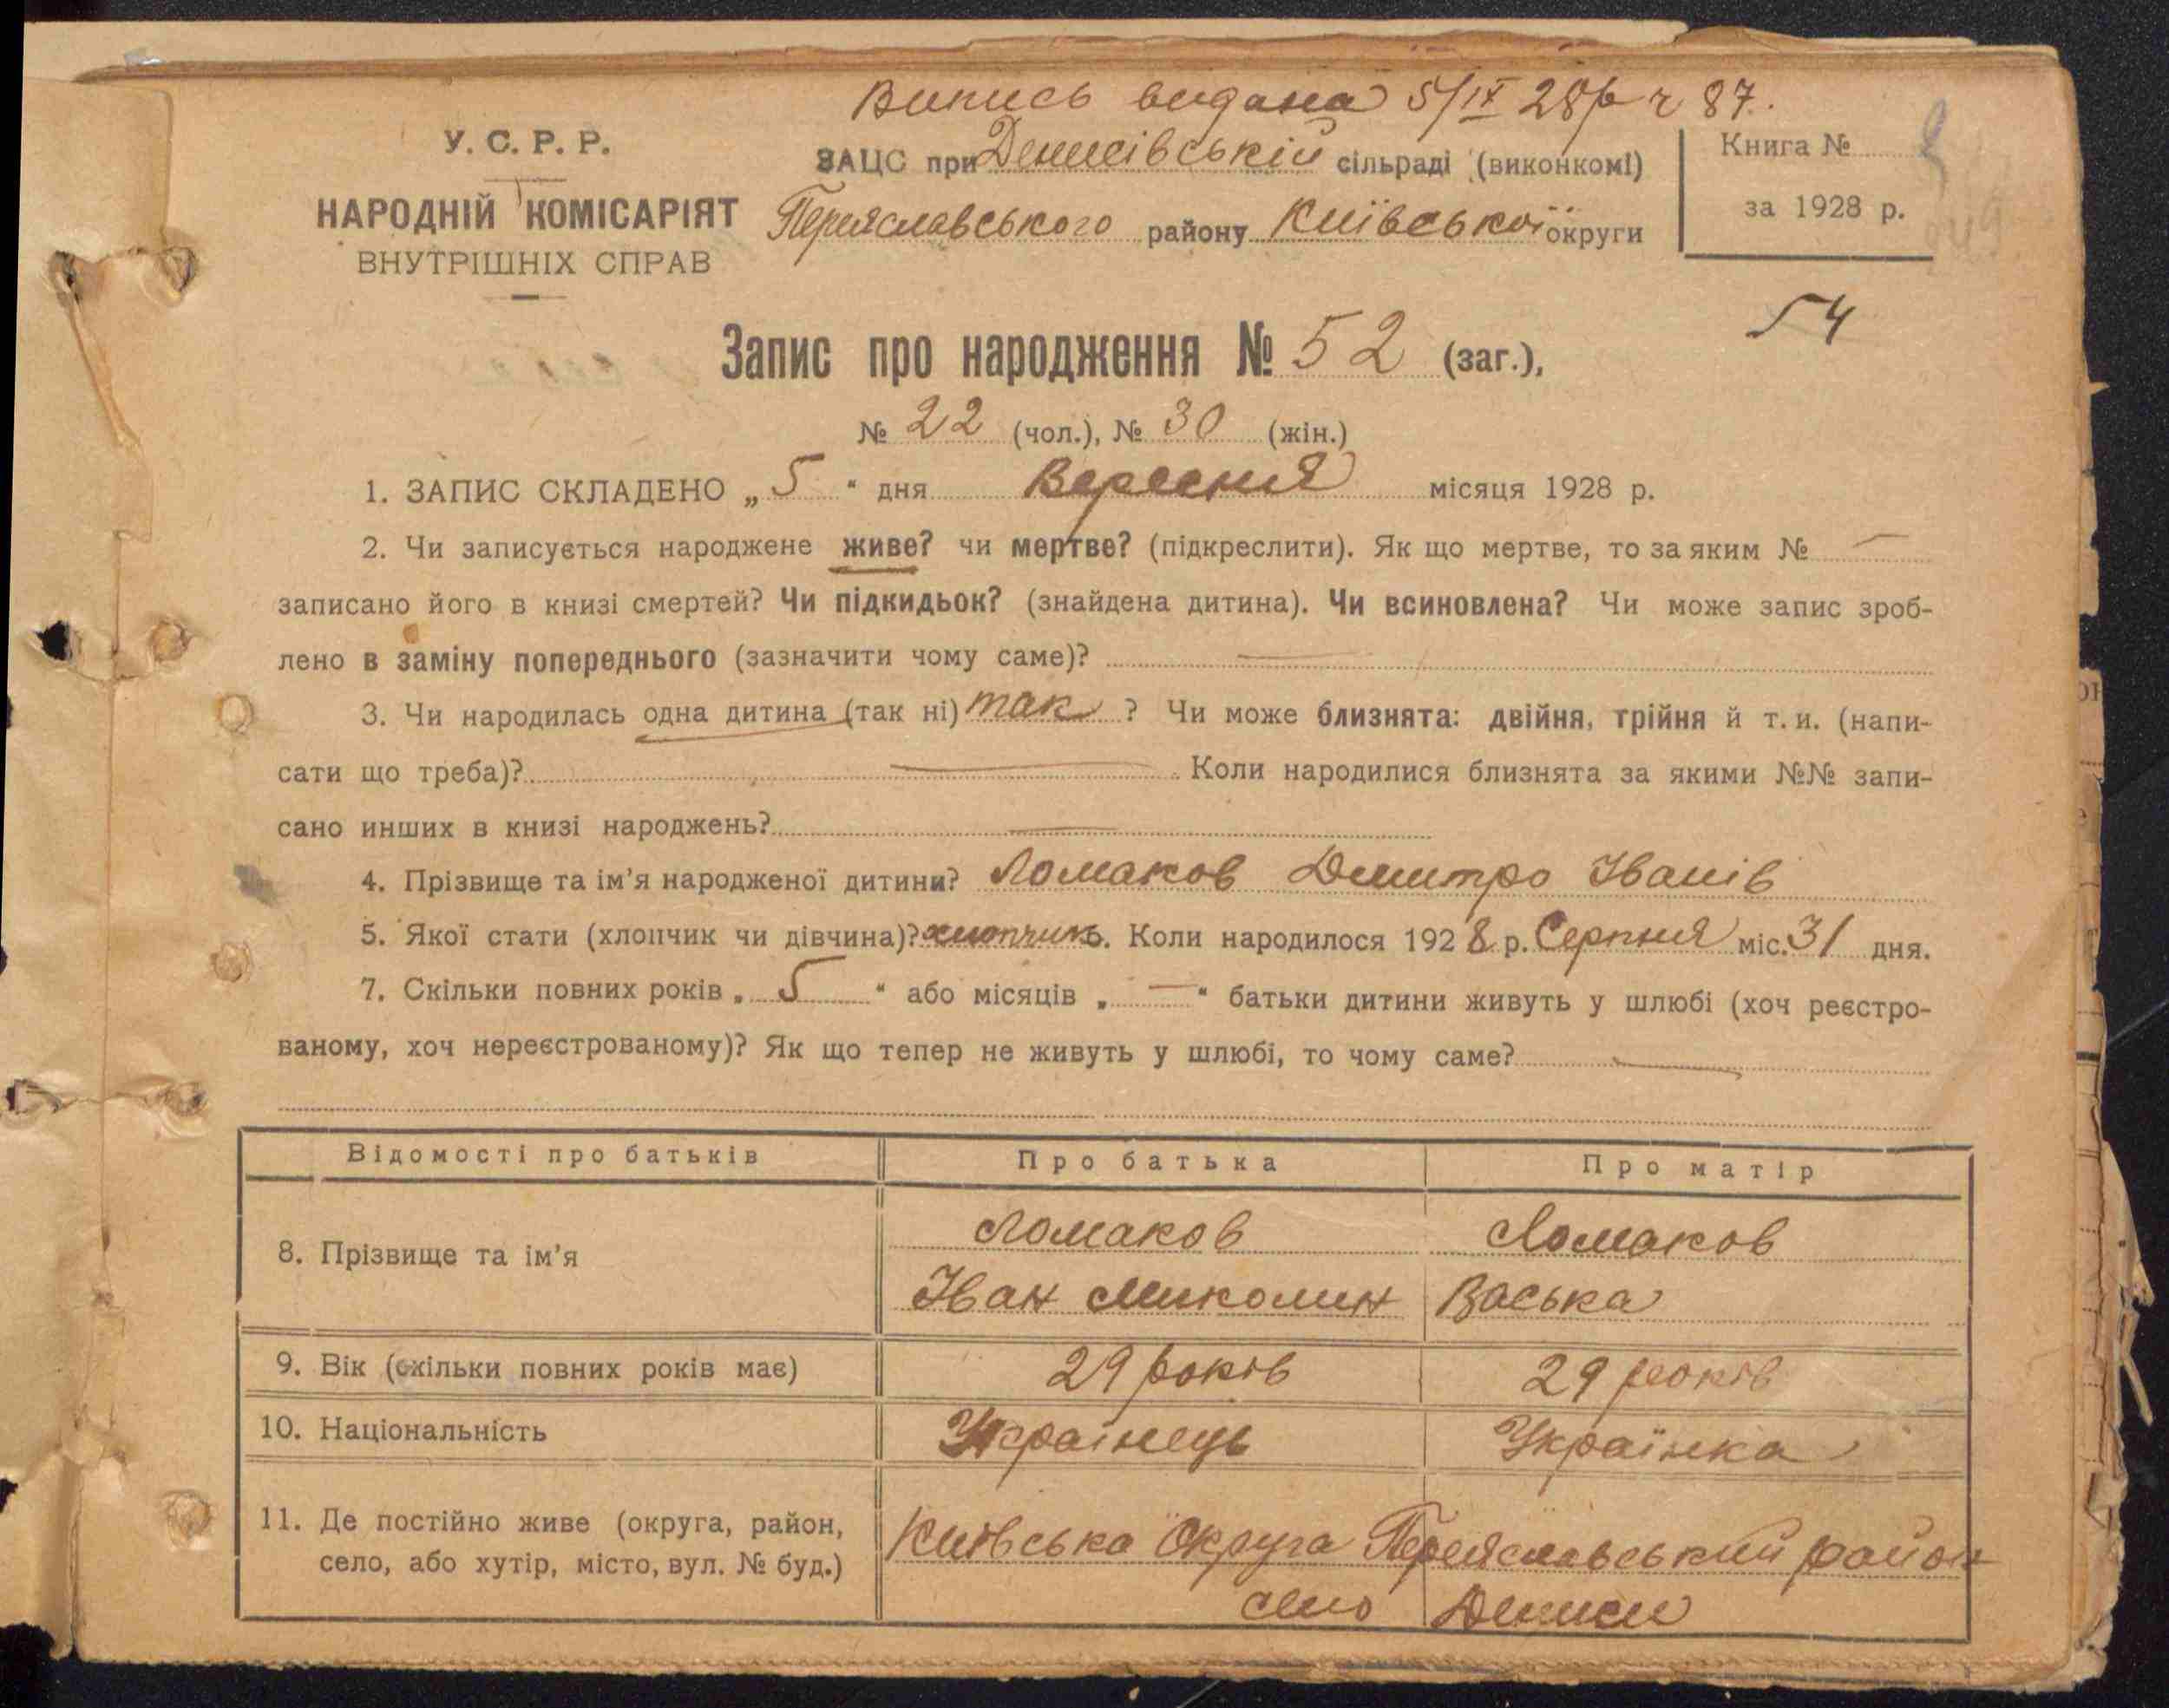 Випись видана 5/IX 28р ч 87.
У. С. Р. Р.
НАРОДНІЙ КОМІСАРІЯТ
ВНУТРІШНІХ СПРАВ
ЗАЦС при Денисівській сільраді (виконкомі)
Переяславського району Київської округи
Книга №
за 1928 р.
54
Запис про народження № 52 (заг.),
№ 22 (чол.), № 30 (жін.)
1. ЗАПИС СКЛАДЕНО „ 5 “ дня Вересня місяця 1928 р.
2. Чи записується народжене живе? чи мертве? (підкреслити). Як що мертве, то за яким № —
записано його в книзі смертей? Чи підкидьок? (знайдена дитина). Чи всиновлена? Чи може запис зроб-
лено в заміну попереднього (зазначити чому саме)? —
3. Чи народилась одна дитина (так ні) так ? Чи може близнята: двійня, трійня й т. и. (напи-
сати що треба)? — Коли народилися близнята за якими №№ запи-
сано инших в книзі народжень? —
4. Прізвище та ім’я народженої дитини? Ломаков Дмитро Іванів
5. Якої стати (хлопчик чи дівчина)? хлопчик 6. Коли народилося 1928 р. Серпня міс. 31 дня.
7. Скільки повних років „ 5 “ або місяців „ — “ батьки дитини живуть у шлюбі (хоч реєстро-
ваному, хоч нереєстрованому)? Як що тепер не живуть у шлюбі, то чому саме? —
Відомості про батьків Про батька Про матір
8. Прізвище та ім’я Ломаков Ломаков
Іван Миколин Васька
9. Вік (скільки повних років має) 29 років 29 років
10. Національність Українець Українка
11. Де постійно живе (округа, район, Київська Округа Переяславський район
село, або хутір, місто, вул. № буд.) село Дениси